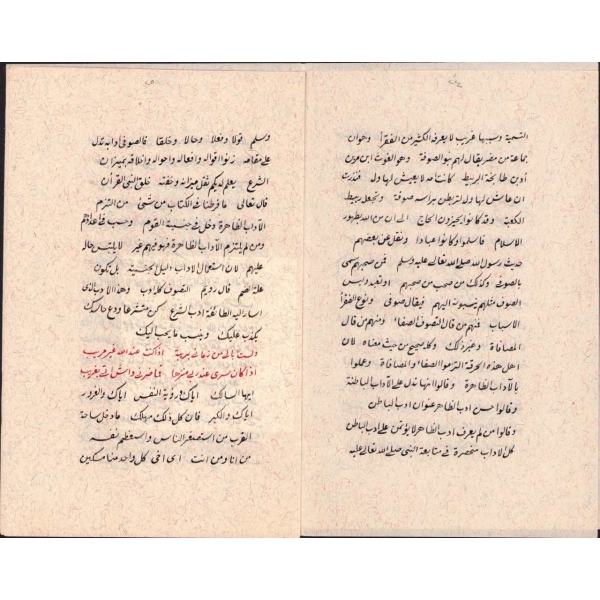 التسمية وسببها غريب لا يعرف الكثير من الفقرا وهو ان
جماعة من مضر يقال لهم بنو الصوفة وهو الغوث ابن مر بن
أد بن طابخة الربيط كانت امه لا يعيش لها ولد فنذرت
ان عاش لها ولد لتربطن براسه صوفة وتجعله ربيط
الكعبة وقد كانوا يجيزون الحاج الى ان من الله بظهور
الاسلام فاسلموا وكانوا عبادا ونقل عن بعضهم
حديث رسول الله صلى الله تعالى عليه وسلم فمن صحبهم سمى
بالصوفى وكذلك من صحب من صحبهم او تعبد ولبس
الصوف مثلهم ينسبونه اليهم فيقال صوفى ونوع الفقرا
الاسباب فمنهم من قال التصوف الصفا ومنهم من قال
المصافاة وغير ذلك وكله صحيح من حيث معناه لان
اهل هذه الخرقة التزموا الصفا والمصافاة وعملوا
بالآداب الظاهرة وقالوا انها تدل على الآداب الباطنة
وقالوا حسن ادب الظاهر عنوان ادب الباطن
وقالوا من لم يعرف ادب الظاهر لا يؤتمن على ادب الباطن
كل الآداب منحصرة فى متابعة النبى صلى الله تعالى عليه
وسلم قولا وفعلا وحالا وخلقا فالصوفى آدابه تدل
على مقامه زنوا اقواله وافعاله واحواله واخلاقه بميزان
الشرع يعلم لديكم ثقل ميزانه وخفته خلق النبى القرآن
قال تعالى ما فرطنا فى الكتاب من شئ من التزم
الآداب الظاهرة دخل فى جنسية القوم وحسب فى اعدادهم
ومن لم يلتزم الآداب الظاهرة فهو فيهم غير لا يلتبس حاله
عليهم لان استعمال الآداب دليل الجنسية بل تكون
علة الضم قال رويم التصوف كله ادب وهذا الادب الذى
اشار اليه الطائفة ادب الشرع كن متشرعا ودع حاسدك
يكذب عليك وينسب ما يحب اليك
ولست ابالى من زمانى بريبة اذا كنت عند الله غير مريب
اذا كان سرى عند ربى منزها فما ضرنى واش اتى بغريب
ايها السالك اياك ورؤية النفس اياك والغرور
اياك والكبر فان كل ذلك مهلك ما دخل ساحة
القرب من استصغر الناس واستعظم نفسه
من انا ومن انت اى اخى كل واحد منا مسكين